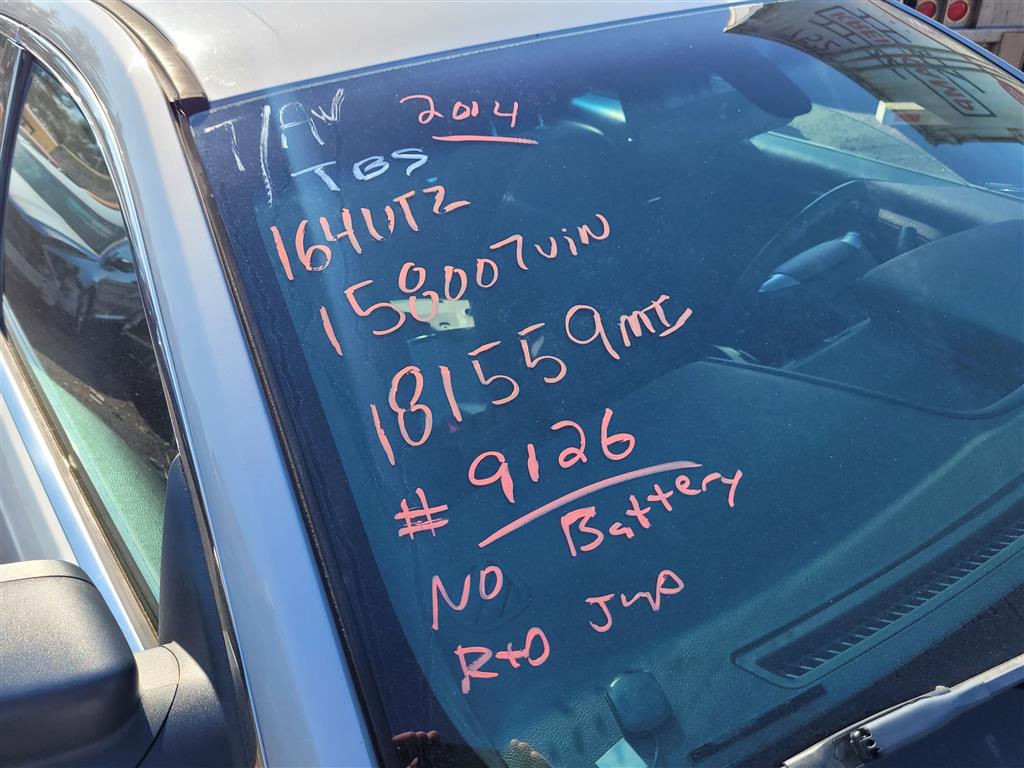 T/AV 2014
TBS
164UTZ
1580007VIN
181559MI
# 9126
NO Battery
R+D Jup